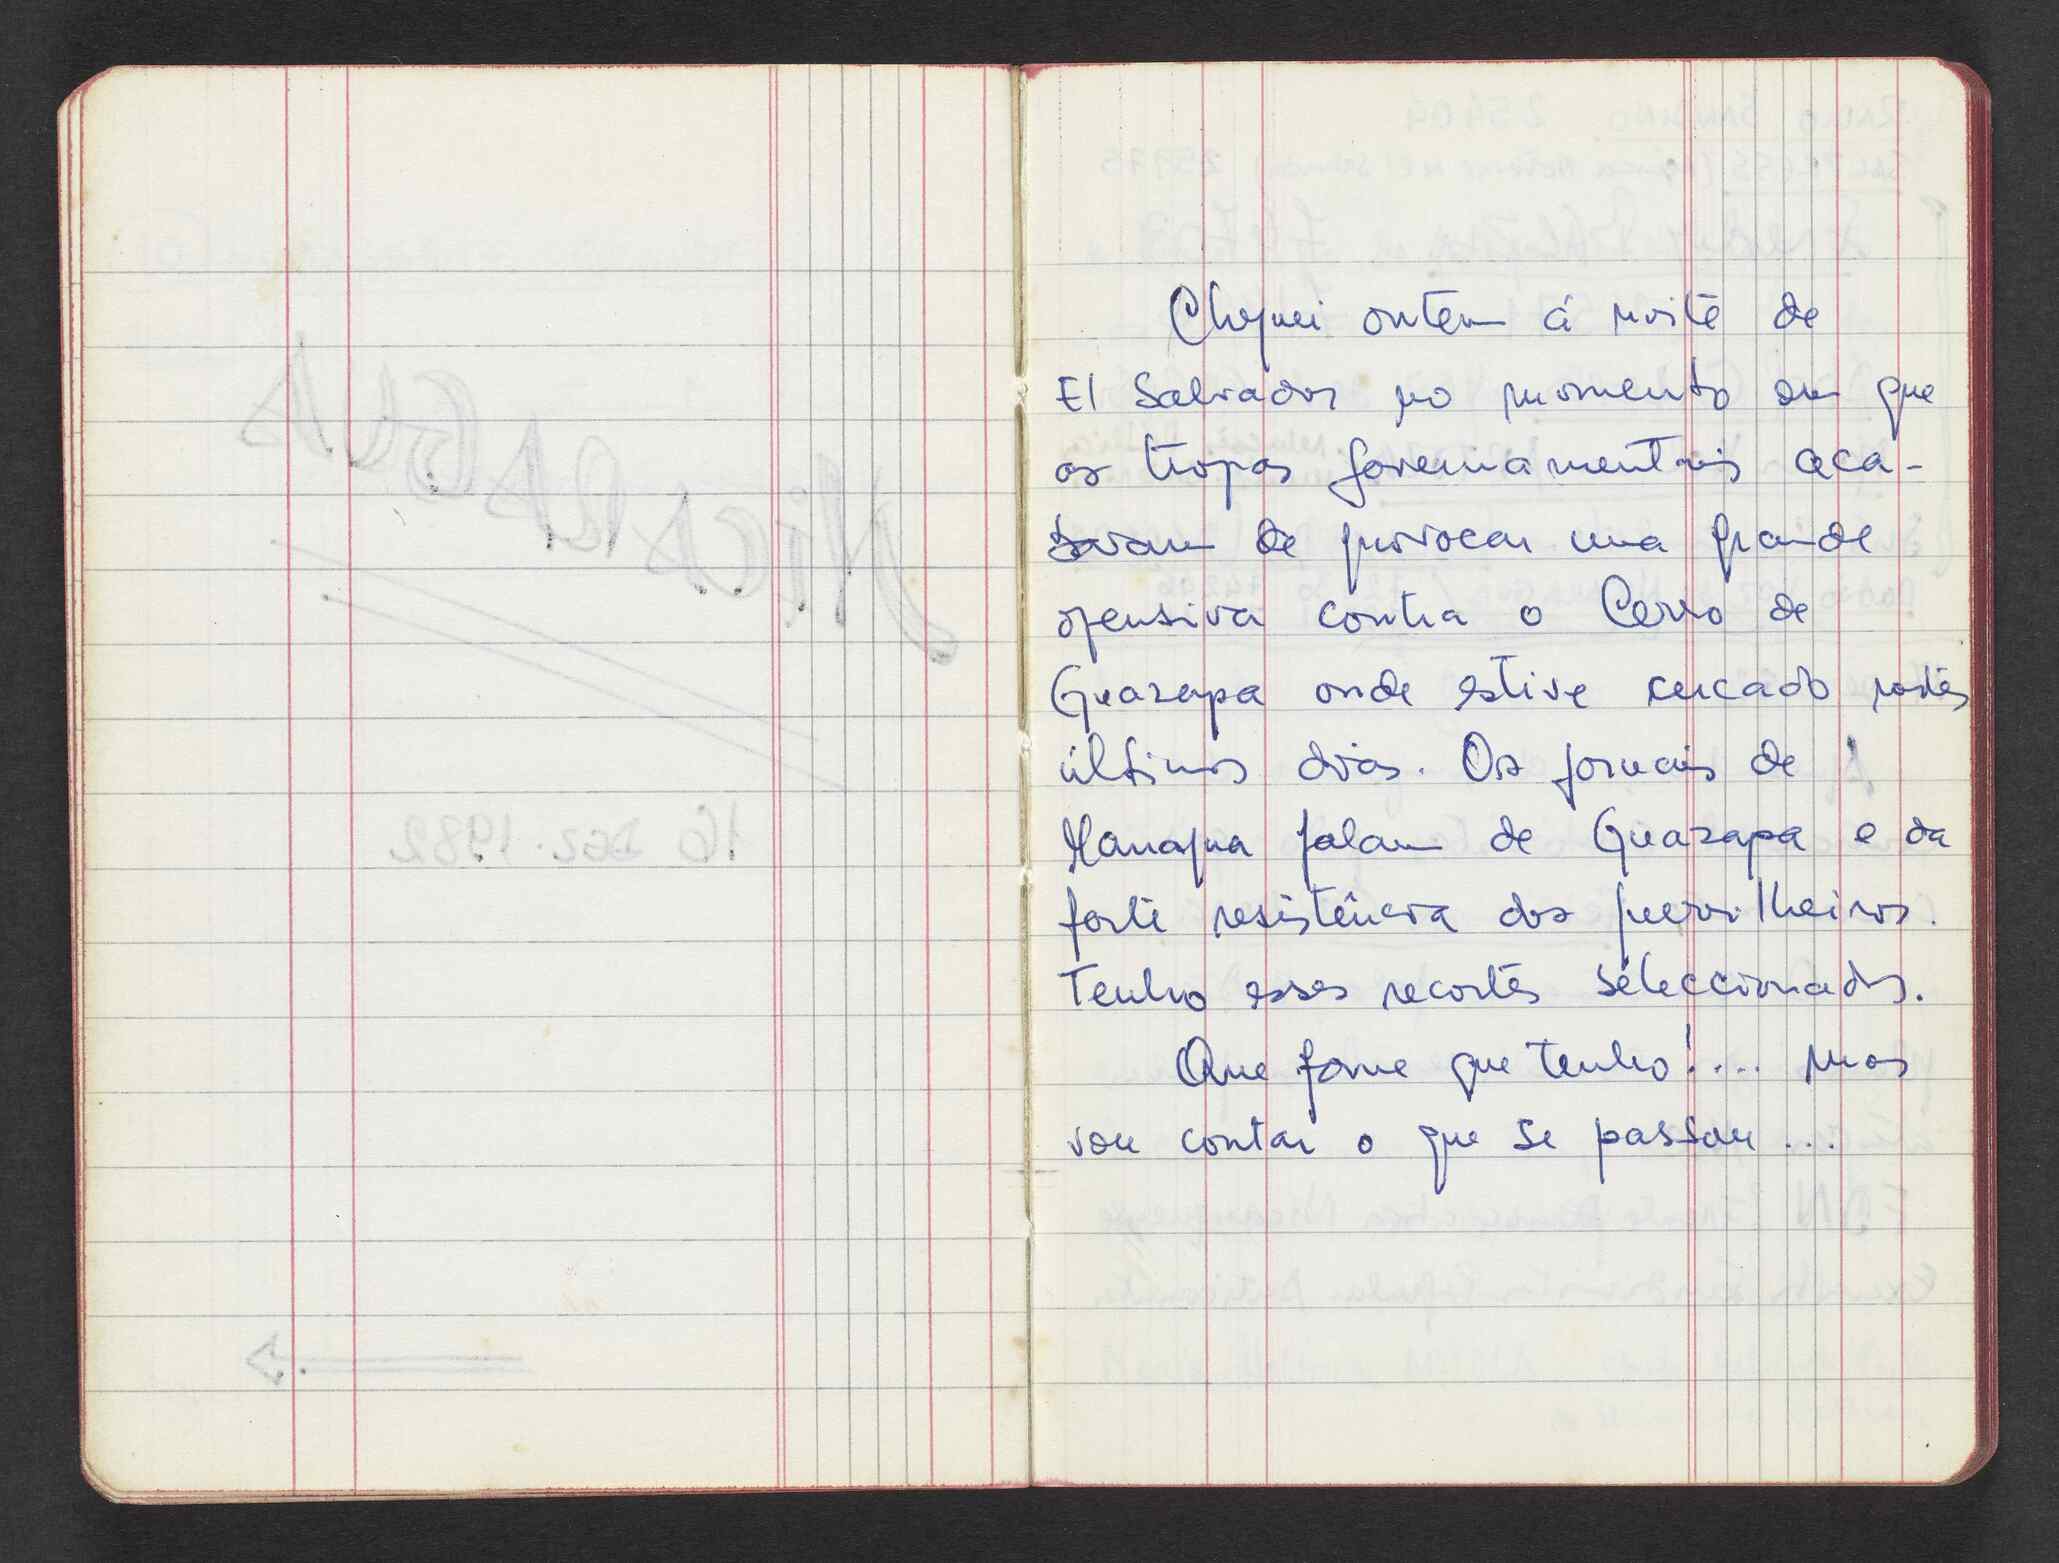 Cheguei ontem á noite de
El Salvador no momento em que
as tropas governamentais aca-
bavam de provocar uma grande
ofensiva contra o Cerro de
Guazapa onde estive cercado nestes
últimos dias. Os jornais de
Managua falam de Guazapa e da
forte resistência dos guerrilheiros.
Tenho esses recortes seleccionados.
Que fome que tenho!.... mas
vou contar o que se passou ...
NICARAGUA
16 DEZ. 1982